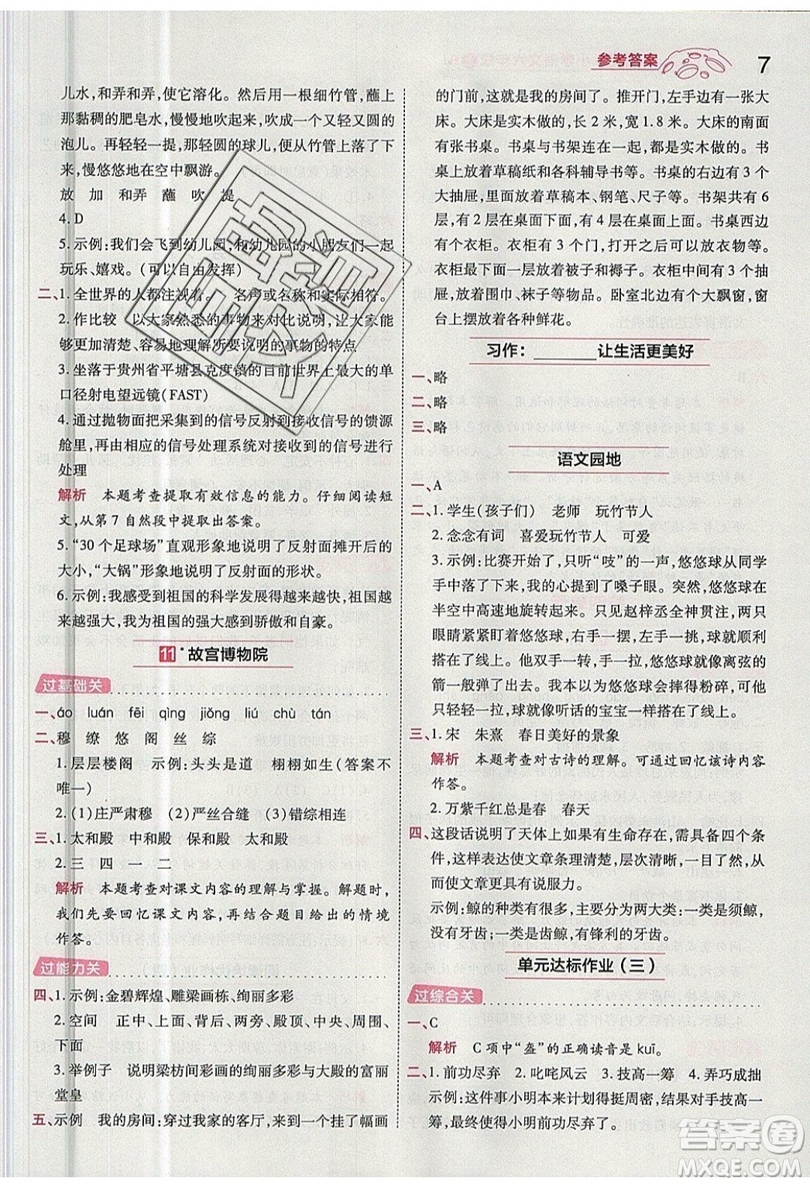 参考答案
7
儿水,和弄和弄,使它溶化。然后用一根细竹管,蘸上
那黏稠的肥皂水,慢慢地吹起来,吹成一个又轻又圆的
泡儿。再轻轻一提,那轻清透明的球儿,便从竹管上落
下来,慢悠悠地在空中飘游。
放 加 和弄 蘸 吹 提
4. D
5. 示例:我们会飞到幼儿园,和幼儿园的小朋友们一起
玩乐、嬉戏。(可自由发挥)
二、1. 全世界的人都注视着。 名声或名称和实际相符。
2. 作比较 以大家熟悉的事物来对比说明,能让大家
更加清楚、易地理解所要说明的事物的特点
3. 坐落于贵州省平塘县克度镇的全球最大的单
口径射电望远镜(FAST)
4. 通过抛物面把采集到的信号反射到接收信号的馈源
舱里,再由相应的信号处理系统对这些信号进行
处理
解析 本题考查提取有效信息的能力。仔细阅读短
文,从第 7 自然段中提取出答案。
5. “30 个足球场”直观形象地说明了反射面摊开后的
大小,“大锅”形象地说明了反射面的形状。
6. 示例:我感受到祖国的科学发展得越来越快,我国越
来越强大,我为祖国的强大感到骄傲和自豪。
11* 故宫博物院
过基础关
一、áo luán fēi qìng jiǒng liú chù tán
二、穆 缭 悠 阁 丝 综
1. 层层楼阁 示例:头头是道 栩栩如生(答案不
唯一)
2. (1)庄严肃穆 (2)严丝合缝 (3)错综相连
三、1. 太和殿 中和殿 保和殿 太和殿
2. 三 四 一 二
解析 本题考查对课文内容的理解与掌握。解题时,
我们先要回忆课文内容,再结合题目给出的情境
作答。
过能力关
四、1. 示例:金碧辉煌、雕梁画栋、绚丽多彩
2. 空间 正中、上面、背后、两旁、六根、周围、
下面
3. 举例子 说明梁枋间彩画的绚丽和太和殿的富丽
堂皇
五、示例 我的房间:穿过我家的客厅,来到一个挂了幅画
的门前,就是我的房间了。推开门,左手边有一张大
床。大床是实木做的,长 2 米,宽 1.8 米。大床旁边
有张书桌。书桌和书架是组合在一起的,也是实木做
的。书桌上放着草稿纸和各科辅导书。书桌下面有一
个大抽屉,里面放着草稿本、钢笔、尺子等。书架有
六层,每层都放着不同种类的书。书桌西边有一个三
门衣柜。衣柜有 3 个门,打开可以放衣物等。衣柜
左门里面放着被子和褥子。衣柜下面有 3 个抽
屉,里面放着围巾、袜子等物品。卧室北边有个大飘窗,窗
台上摆放着各种鲜花。
习作:________让生活更美好
一、略
二、略
三、略
语文园地
一、A
二、1. 学生(孩子们) 老师 玩竹节人
2. 念念有词 喜爱玩竹节人 可爱
3. 示例:比赛开始,只听“吱”的一声,悠悠球从同学
们手中飞了出来。我的心提到了嗓子眼。悠悠球在
半空中高速地旋转起来。只见赵梓丞全神贯注,两只
眼睛紧紧盯住悠悠球,右手一摆,左手一挑,悠悠球
回到了他手心。他双手一扶,快速地一转,悠悠球快
速地转着圈。我以为他的球会摔得粉碎,可是,他
只轻轻一拉,球就像听话的宝宝一样回到了主人的
手中。
三、1. 宋 朱熹 春日美好的景象
解析 本题考查对古诗的理解。可通过回忆该诗内容
作答。
2. 万紫千红总是春 春天
四、这段话说明了天体上如果有生命存在,需具备四个条
件,这样能使文章条理清楚,层次分明,一目了然,从
而使文章更具有说服力。
示例:鲸的种类有很多,分为两大类:一类是须鲸,
没有牙齿;一类是齿鲸,有锋利的牙齿。
单元达标作业(三)
过综合关
一、C
解析 C 项中“盔”的正确读音是 kuī。
二、1. 前功尽弃 2. 叱咤风云 3. 技高一筹 4. 弄巧成拙
示例:这件事小明本来计划得挺周密,结果对手技高一
筹,使得小明前功尽弃了。
答案圈
MXQE.COM